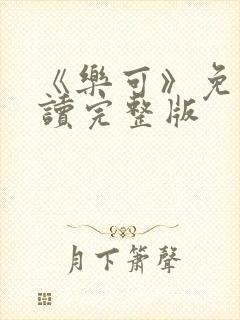 《樂可》免
讀完整版
月下簫聲